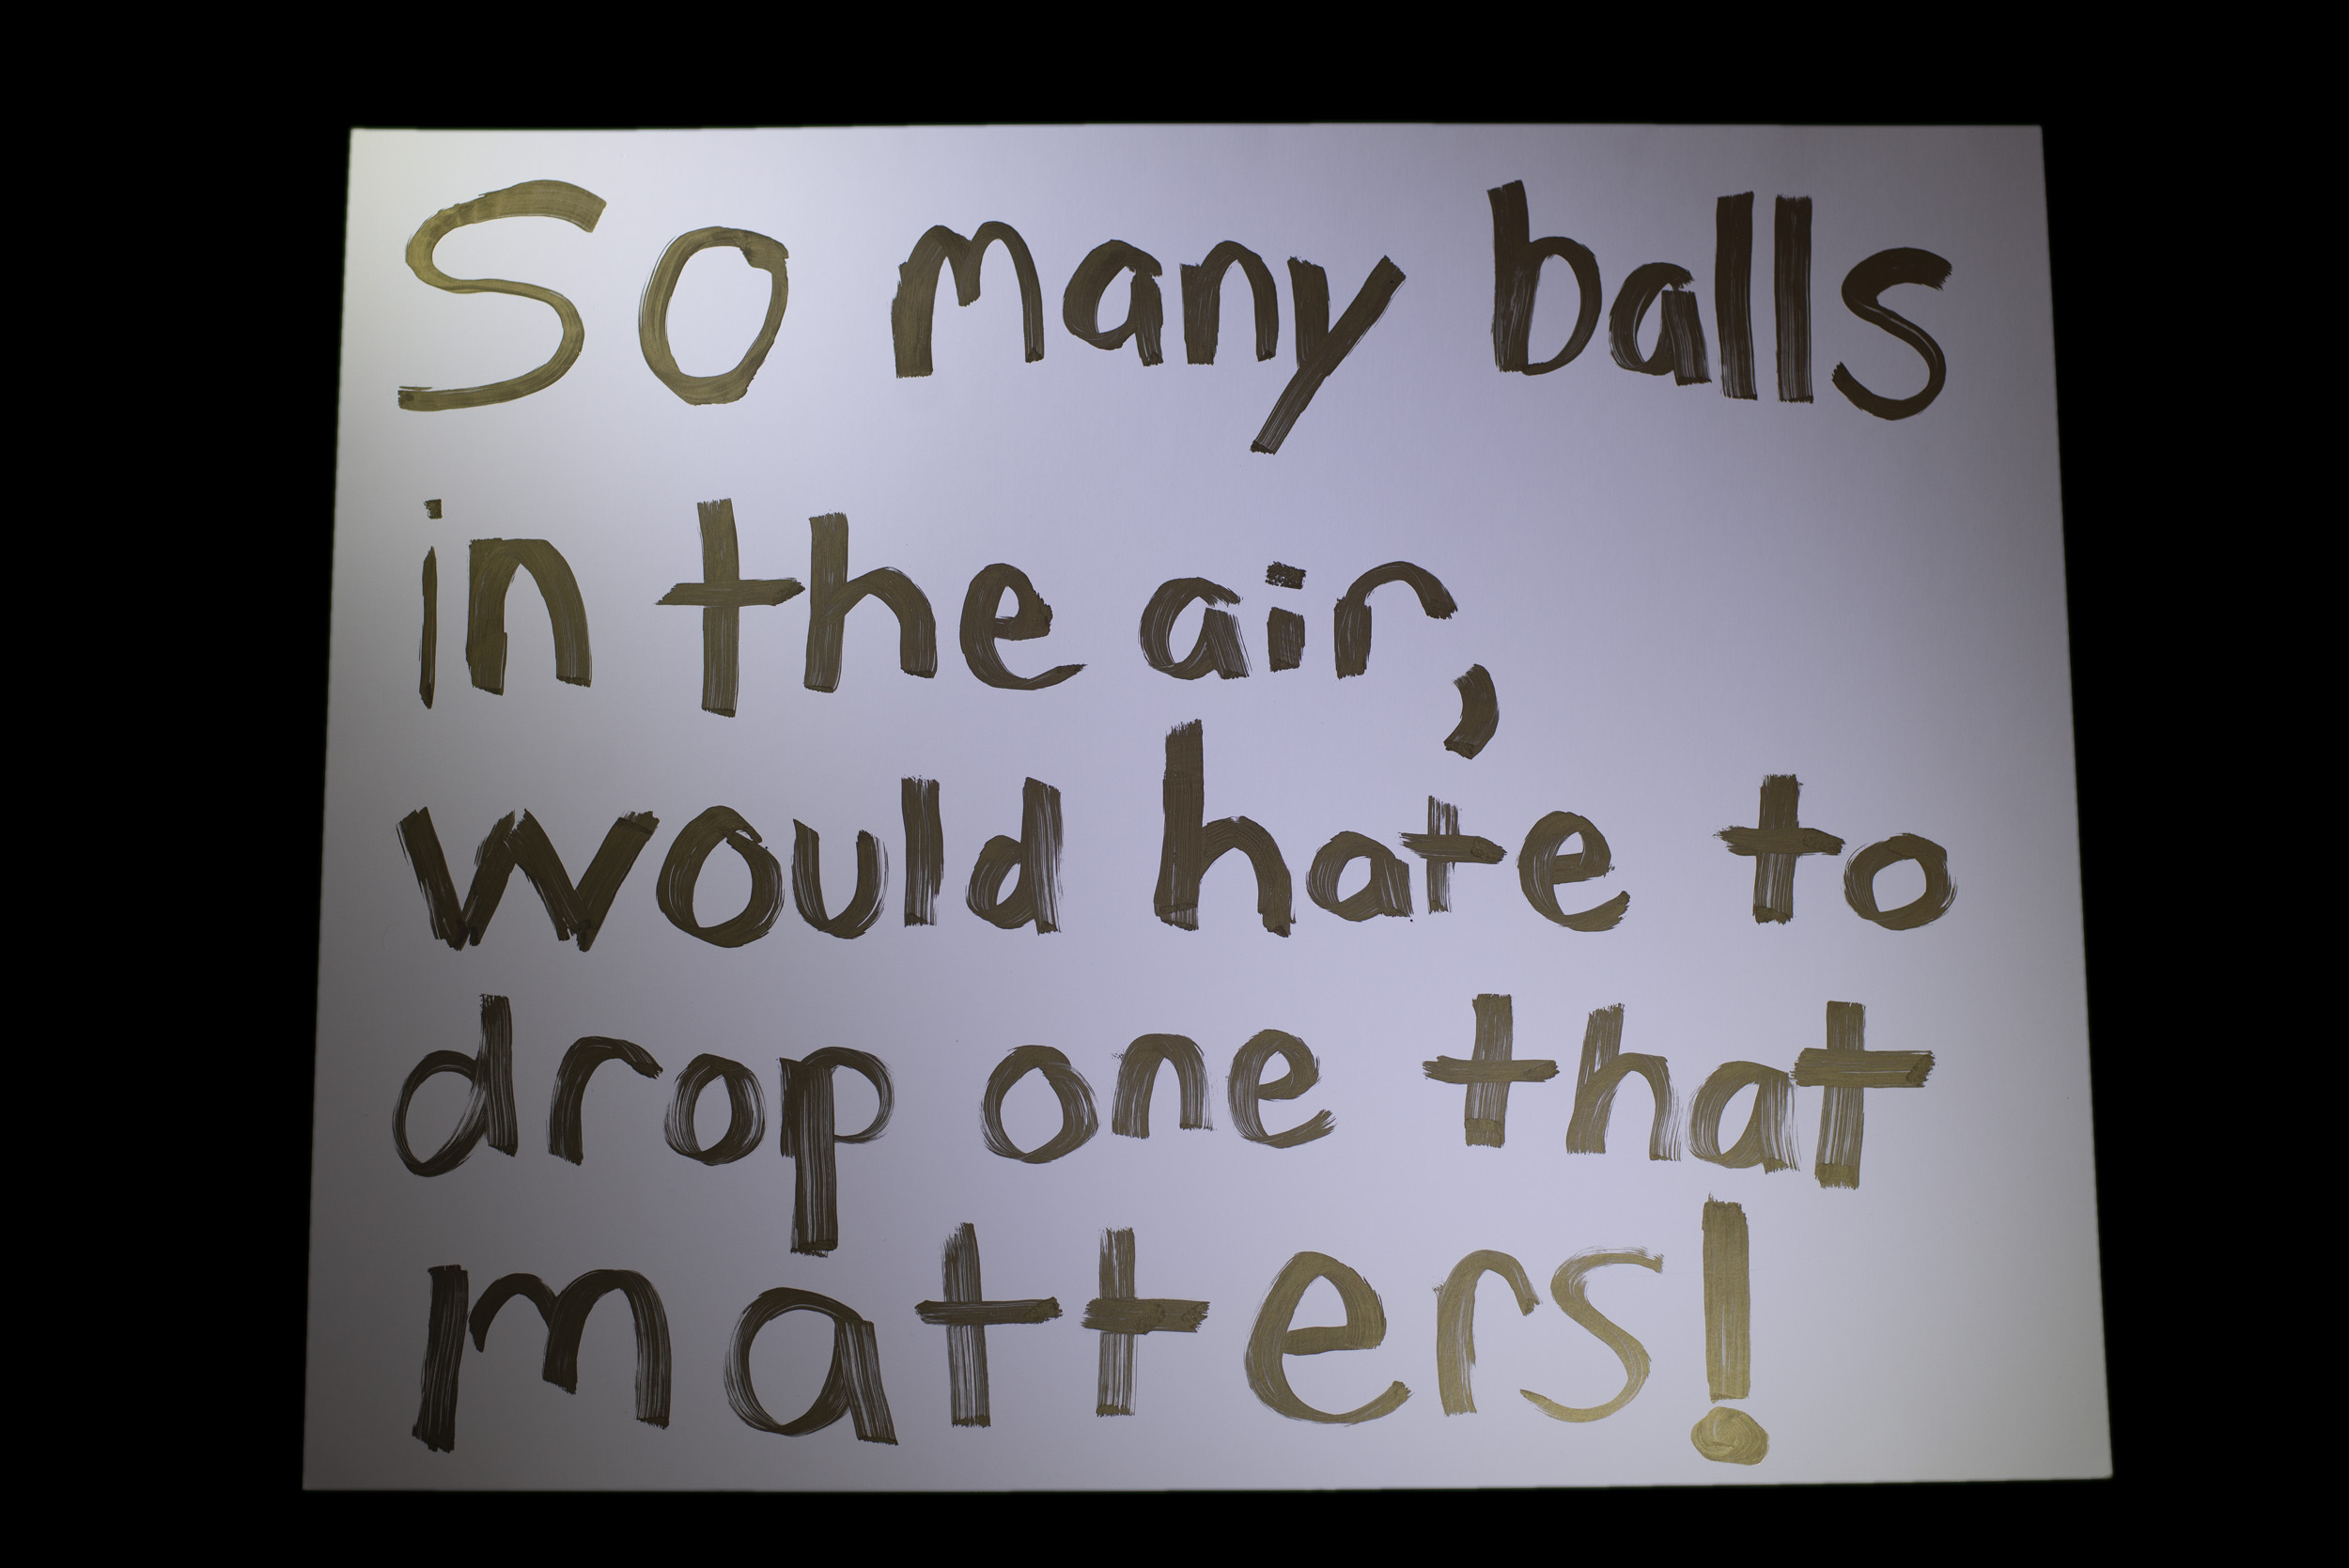 So many balls
in the air,
would hate to
drop one that
matters!